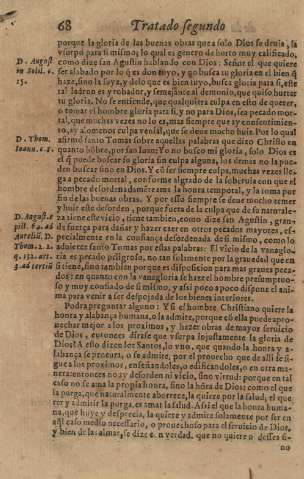 68 Tratado segundo
porque la gloria de las buenas obras que a solo Dios se deuia, la
vsurpa para si mismo; lo qual es genero de hurto muy calificado,
como dize san Agustin hablando con Dios: Señor el que quiere
ser alabado por lo que es don tuyo, y no busca tu gloria en el bien q̃
haze, sino la suya, y delo que es bien tuyo, busca gloria para si, este
tal ladron es y robador, y semejante al demonio, que quiso hurtar
tu gloria. No se entiende, que qualquiera culpa en esto de querer,
o tomar el hombre gloria para si, y no para Dios, sea pecado mor-
tal, que muchas vezes no lo es, mas siempre que ay consentimien-
to, ay alomenos culpa venial, que se deue mucho huir. Por lo qual
D. August.
in Soli. c.
15.
D. Thom.
Ioann. c. 8.
afirmò santo Tomas sobre aquellas palabras que dixo Christo en
quanto hõbre, por san Iuan: Yo no busco mi gloria, solo Dios es
el q̃ puede buscar su gloria sin culpa alguna, los demas no la pue-
den buscar sino en Dios. Y cõ ser siempre culpa, muchas vezes lle-
ga a pecado mortal, conforme al grado de la soberuia con que el
hombre desordenadamẽte ama la honra temporal, y la toma por
fin de las buenas obras. Y por esso siempre se deue mucho temer
y huir este desorden, porque fuera de la culpa que de su naturale-
za tiene este vicio, tiene tambien, como dize san Agustin, gran-
de fuerça para dañar y hazer caer en otros pecados mayores, es-
pecialmente en la confiança desordenada de si mismo, como lo
aduierte santo Tomas por estas palabras: El vicio de la vanaglo-
ria es pecado peligroso, no tan solamente por la grauedad que en
si tiene, sino tambien porque es disposicion para mas graues peca-
dos: en quanto con la vanagloria se haze el hombre presumptuo-
so y muy confiado de si mismo, y assi poco a poco dispone el ani-
ma para venir a ser despojada de los bienes interiores.
D. August. e
pist. 64. ad
Aurelio. D.
Thom. 2. 2.
q. 132. art.
3. ad tertiũ
Podra preguntar alguno: Y si el hombre Christiano quiere la
honra y alabança humana, o la admite, porque cõ ella puede apro-
uechar mejor a los proximos, y hazer obras de mayor seruicio
de Dios, entonces dirase que vsurpa injustamente la gloria de
Dios? A esto dizen los Santos, lo vno, que quando la honra y a-
labança se procura, o se admite, por el prouecho que de alli se si-
gue a los proximos, enseñandoles, o edificandoles, o en otra ma-
nera: entonces no ay desorden ni vicio, sino virtud: porque en tal
caso no se ama la propia honra, sino la hõra de Dios: como el que
la purga, que naturalmente aborrece, la quiere por la salud, el que-
rer y admitir la purga, es amar la salud. Assi el que la honra huma-
na, que huye y desprecia, la quiere y admite solamente por ser en
aq̃l caso medio necessario, o prouechoso para el seruicio de Dios,
y bien de las almas, se dize con verdad, que no quiere ni dessea si-
no